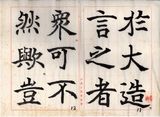 於大造
言之者
衆可不
然歟豈